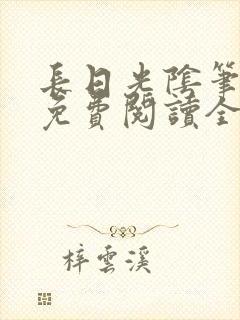 長日光陰筆
免費閱讀全
梓雲溪